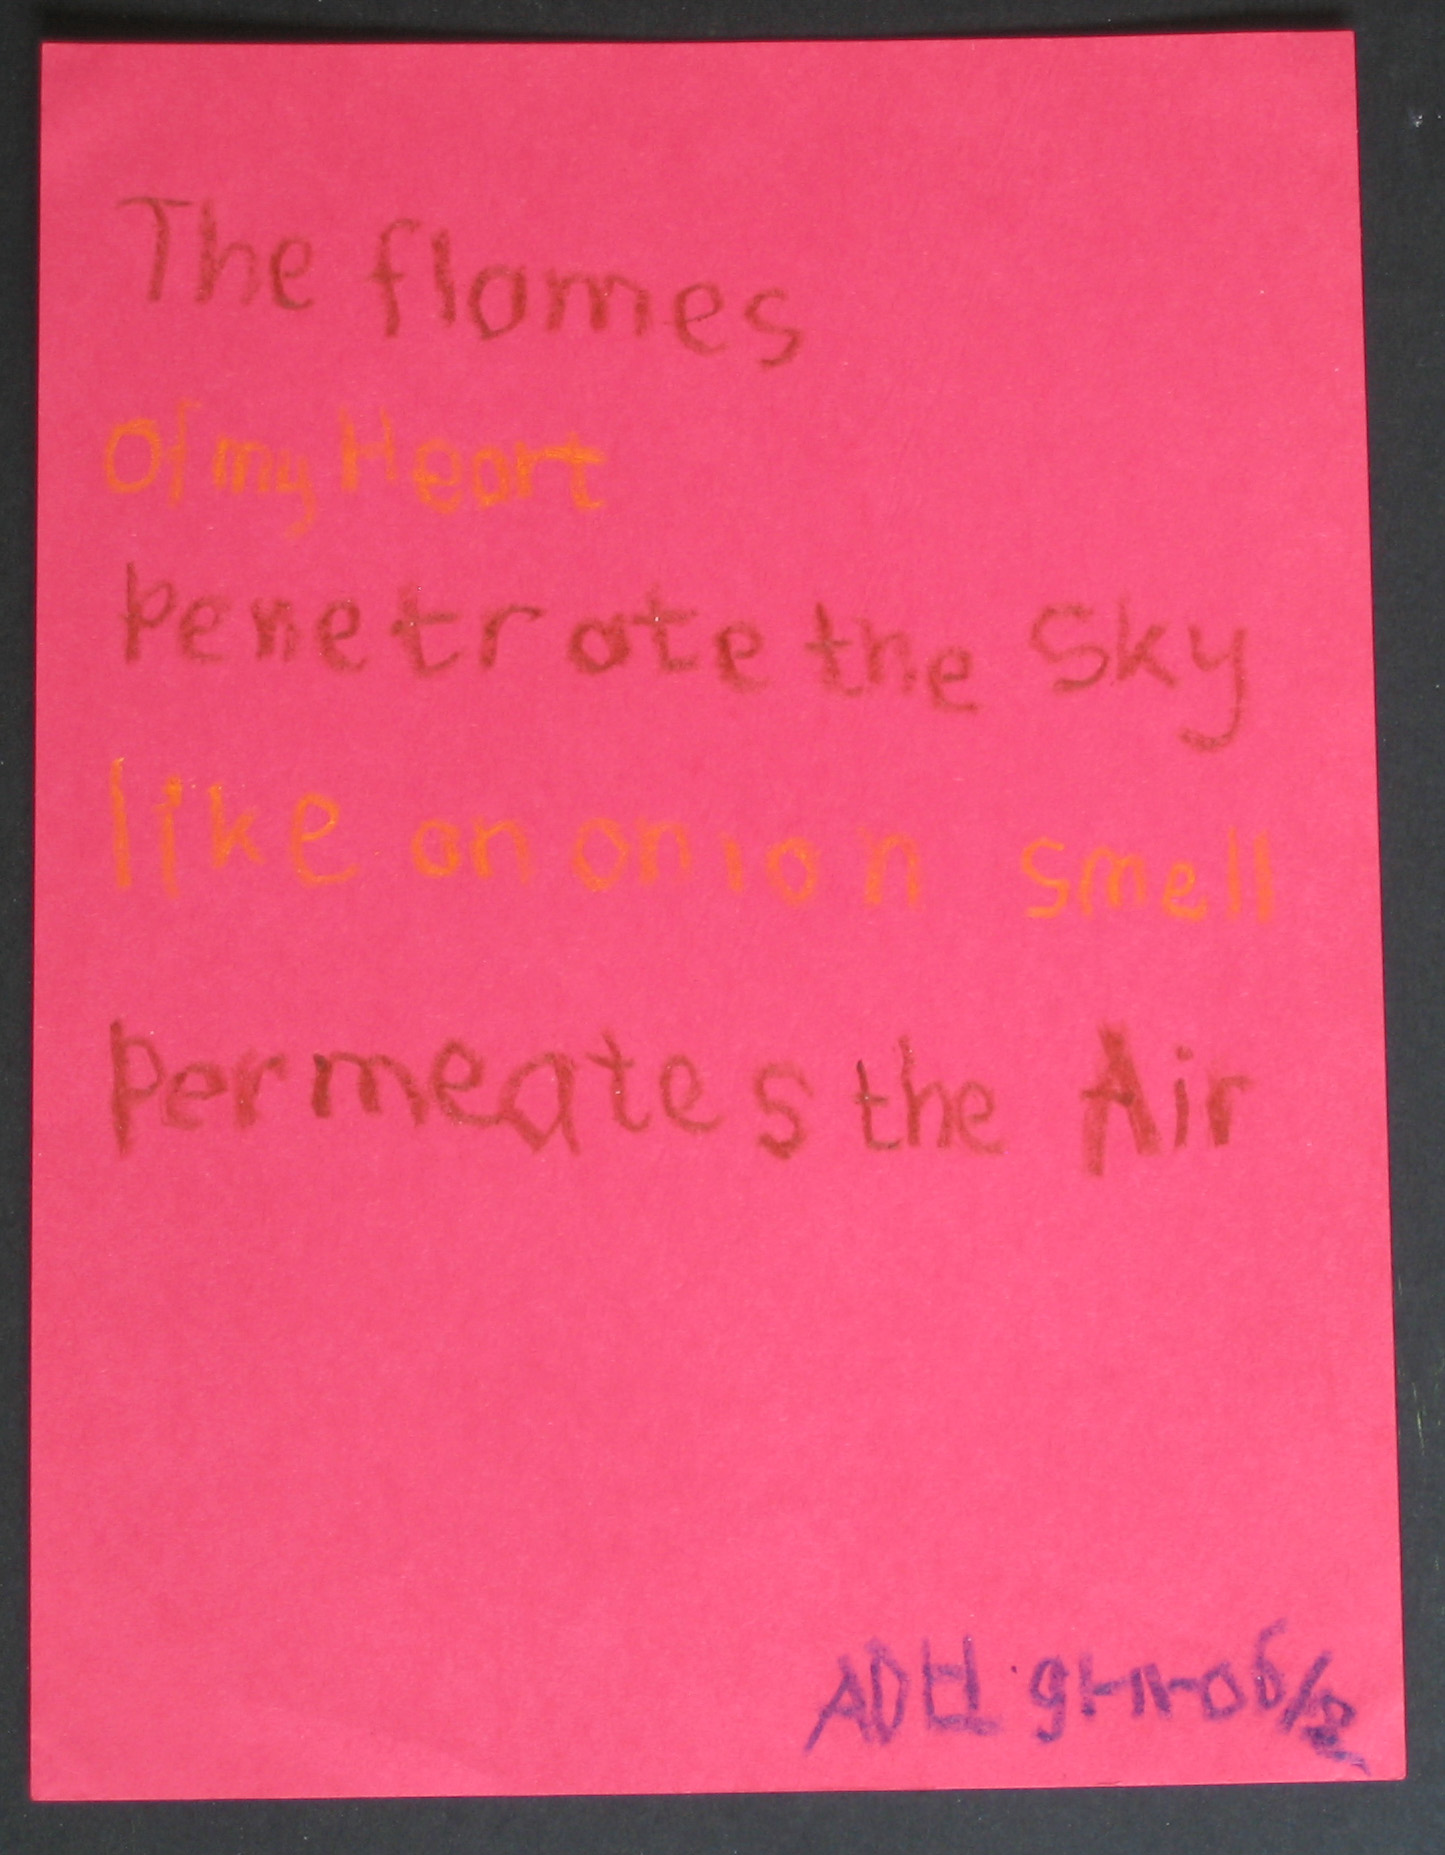 The flames
Of my Heart
Penetrate the Sky
like an onion smell
Permeates the Air